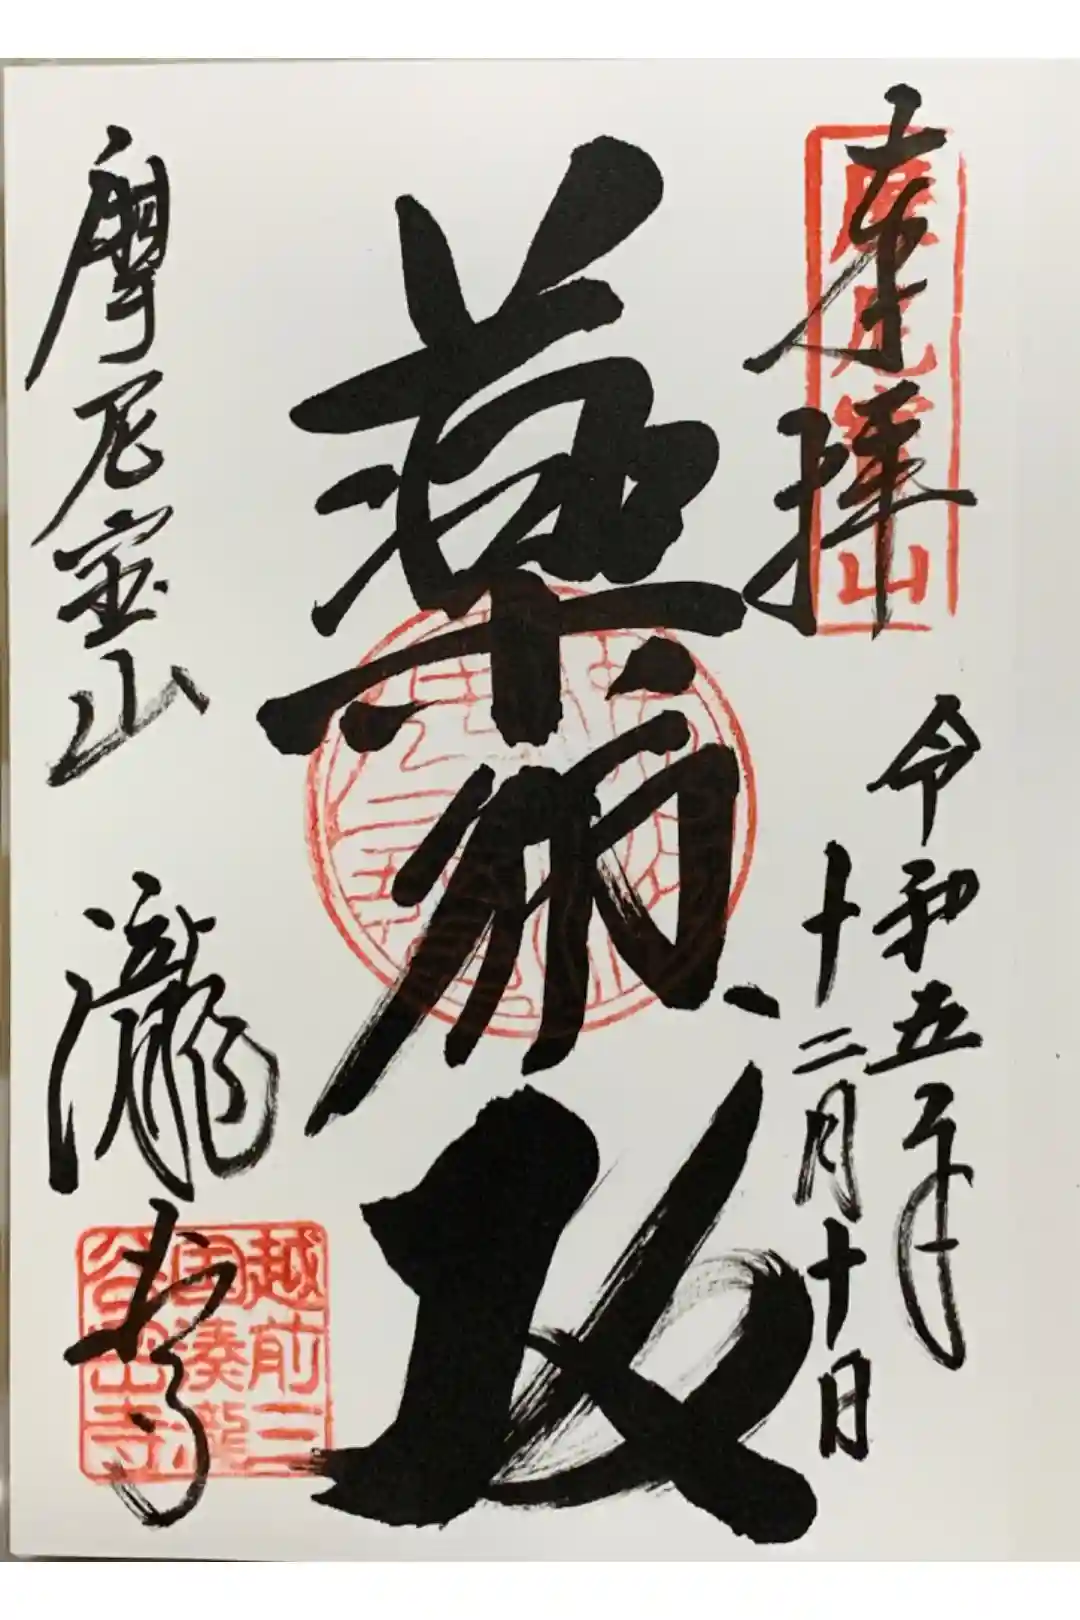 奉拝
摩尼寳山
令和五年
十二月十日
薬師
摩尼宝山 瀧谷寺
越前三
国湊瀧